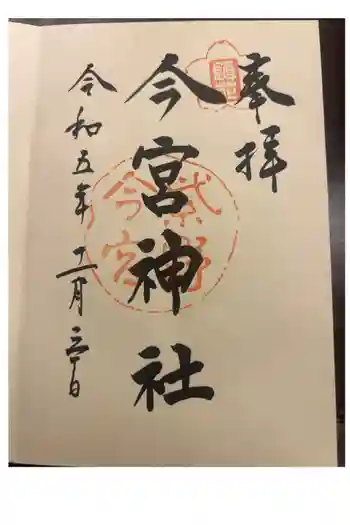 奉拝
今宮神社
紫野
今宮
令和五年十一月三日